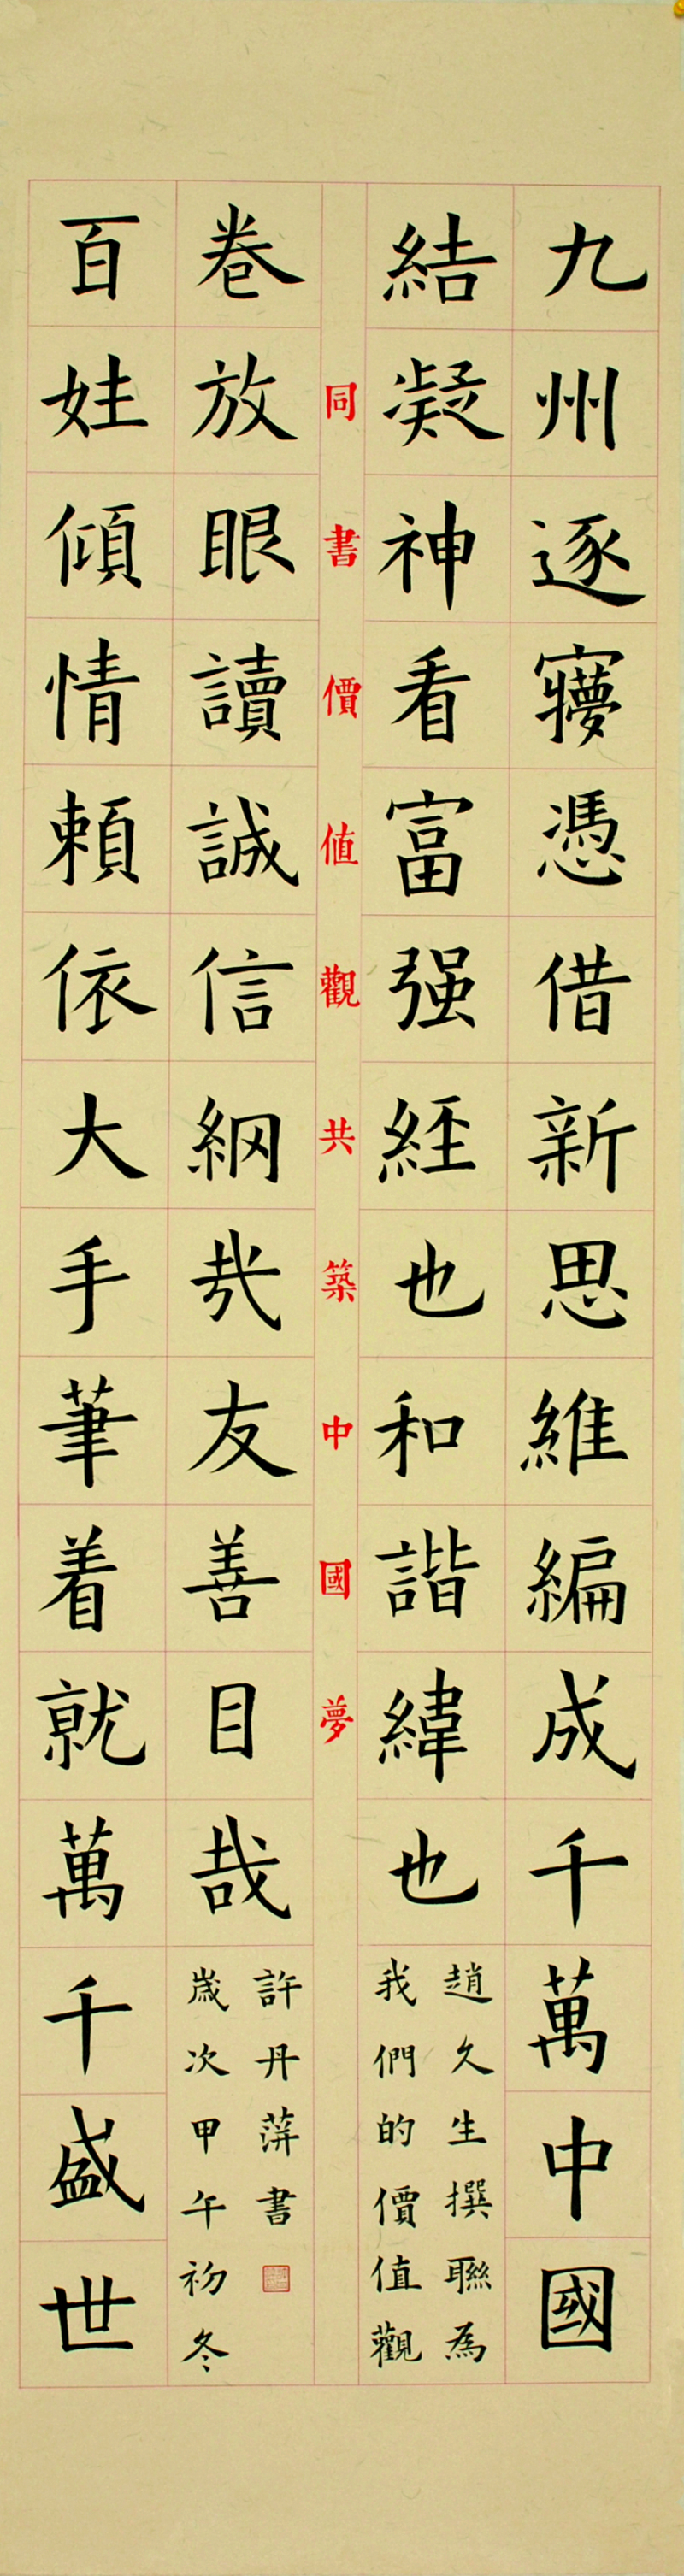 九州逐夢憑借新思維編成千萬中國
結凝神看富强經也和諧緯也
趙久生撰聯為
我們的價值觀
同書價值觀共築中國夢
卷放眼讀誠信綱哉友善目哉
許丹萍書
歲次甲午初冬
百姓傾情頼依大手筆着就萬千盛世